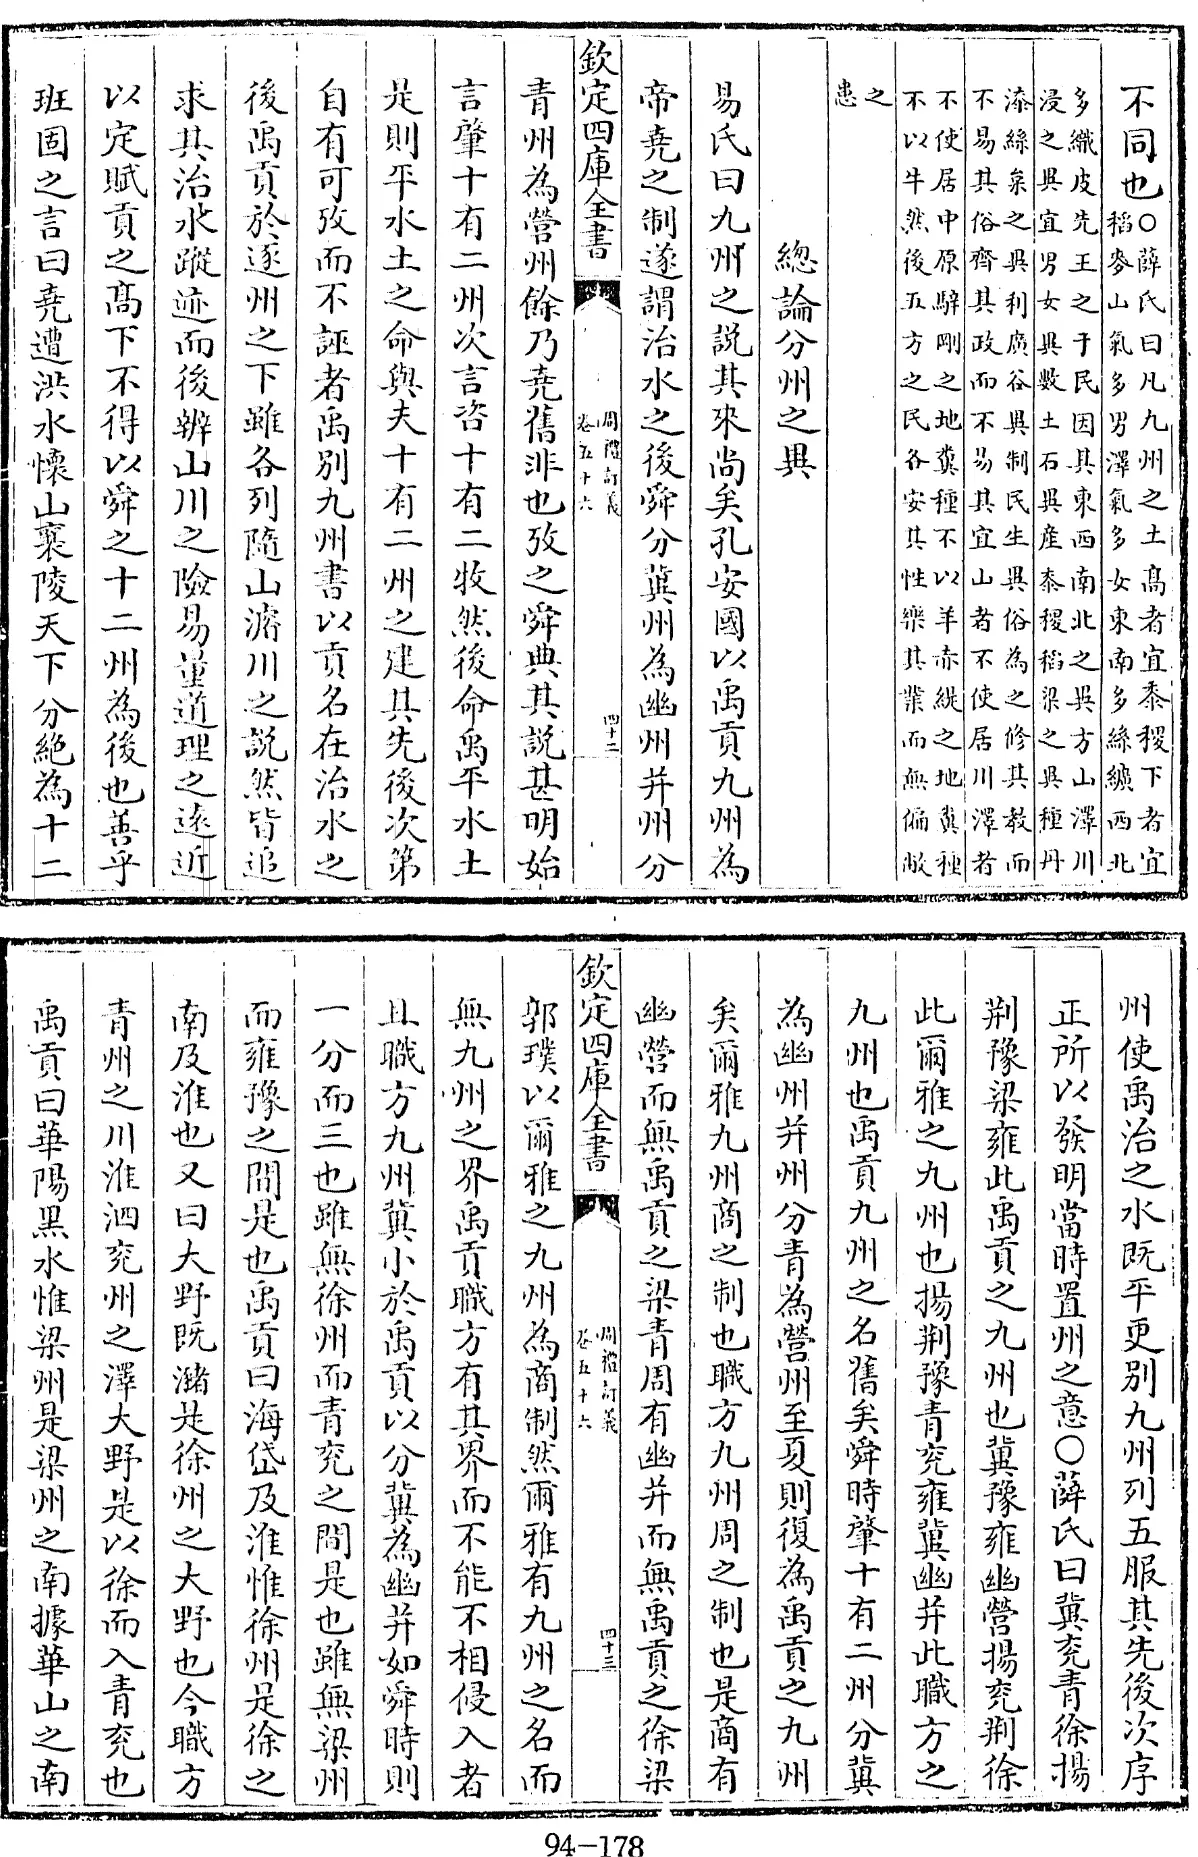 不同也○薛氏曰凡九州之土髙者宜黍稷下者宜
稻麥山氣多男澤氣多女東南多絲纊西北
多織皮先王之于民因其東西南北之異方山澤川
浸之異宜男女異數土石異産黍稷稻梁之異種丹
漆絲枲之異利廣谷異制民生異俗為之修其教而
不易其俗齊其政而不易其宜山者不使居川澤者
不使居中原騂剛之地糞種不以羊赤緹之地糞種
不以牛然後五方之民各安其性樂其業而無偏敝
之
患
總論分州之異
易氏曰九州之説其來尚矣孔安國以禹貢九州為
帝堯之制遂謂治水之後舜分冀州為幽州并州分
欽定四庫全書
周禮訂義
卷五十六
四十二
青州為營州餘乃堯舊非也攷之舜典其説甚明始
言肇十有二州次言咨十有二牧然後命禹平水土
是則平水土之命與夫十有二州之建其先後次第
自有可攷而不誣者禹别九州書以貢名在治水之
後禹貢於逐州之下雖各列隨山濬川之説然皆追
求其治水蹤迹而後辨山川之險易量道理之逺近
以定賦貢之髙下不得以舜之十二州為後也善乎
班固之言曰堯遭洪水懷山襄陵天下分絶為十二
州使禹治之水既平更别九州列五服其先後次序
正所以發明當時置州之意○薛氏曰冀兖青徐揚
荆豫梁雍此禹貢之九州也冀豫雍幽營揚兖荆徐
此爾雅之九州也揚荆豫青兖雍冀幽并此職方之
九州也禹貢九州之名舊矣舜時肇十有二州分冀
為幽州并州分青為營州至夏則復為禹貢之九州
矣爾雅九州商之制也職方九州周之制也是商有
幽營而無禹貢之梁青周有幽并而無禹貢之徐梁
欽定四庫全書
周禮訂義
卷五十六
四十三
郭璞以爾雅之九州為商制然爾雅有九州之名而
無九州之界禹貢職方有其界而不能不相侵入者
且職方九州冀小於禹貢以分冀為幽并如舜時則
一分而三也雖無徐州而青兖之間是也雖無梁州
而雍豫之間是也禹貢曰海岱及淮惟徐州是徐之
南及淮也又曰大野既瀦是徐州之大野也今職方
青州之川淮泗兖州之澤大野是以徐而入青兖也
禹貢曰華陽黑水惟梁州是梁州之南據華山之南
94-178